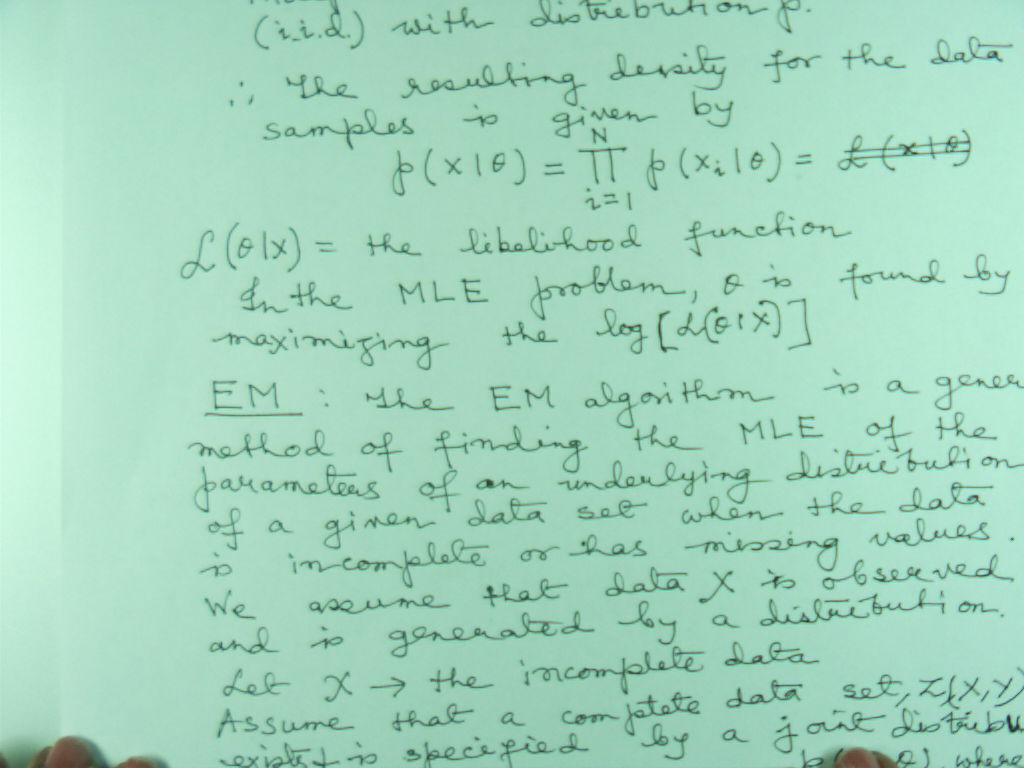 (i.i.d.) with distribution p.
∴ The resulting density for the data
samples is given by
p(x|θ) = ∏ᵢ₌₁ᴺ p(xᵢ|θ) = ~~L(x|θ)~~
L(θ|X) = the likelihood function
In the MLE problem, θ is found by
maximizing the log[L(θ|X)]
EM : The EM algorithm is a gener
method of finding the MLE of the
parameters of an underlying distribution
of a given data set when the data
is incomplete or has missing values.
We assume that data X is observed
and is generated by a distribution.
Let X → the incomplete data
Assume that a complete data set, Z(X,Y)
exists & is specified by a joint distribu
p( θ), where